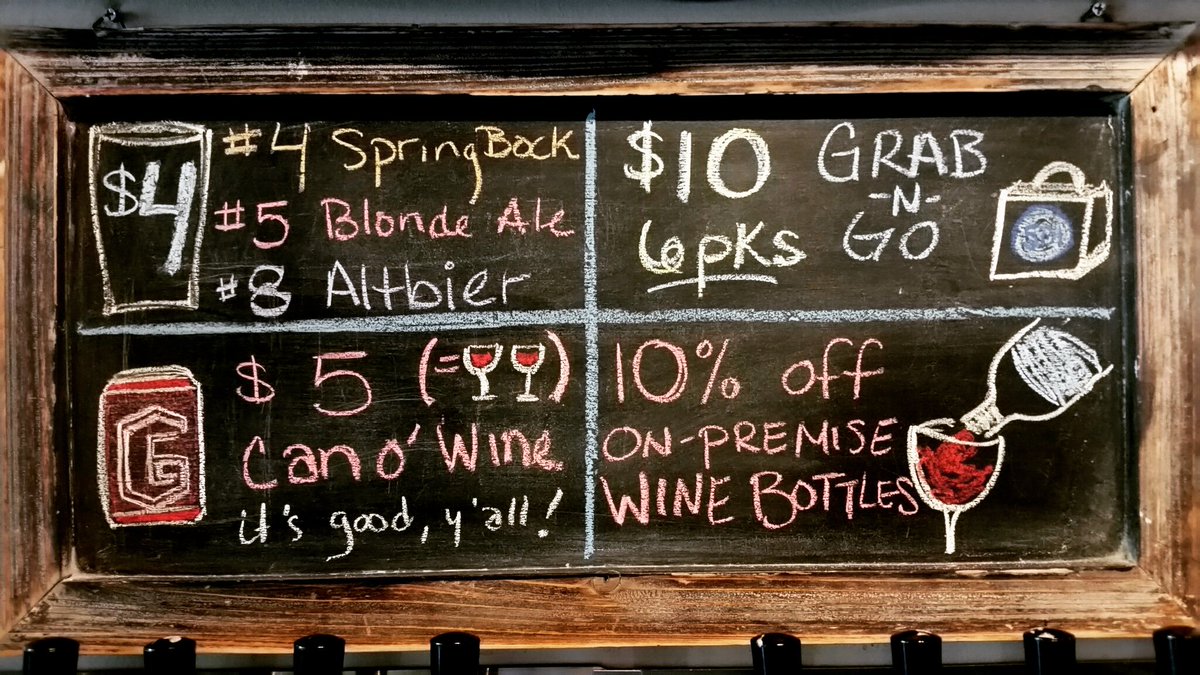 $4
#4 SpringBock
#5 Blonde Ale
#8 Altbier
$10
6pks
GRAB
-N-
GO
G
$5 (= )
Can o' Wine
it's good, y'all!
10% off
ON-PREMISE
WINE BOTTLES